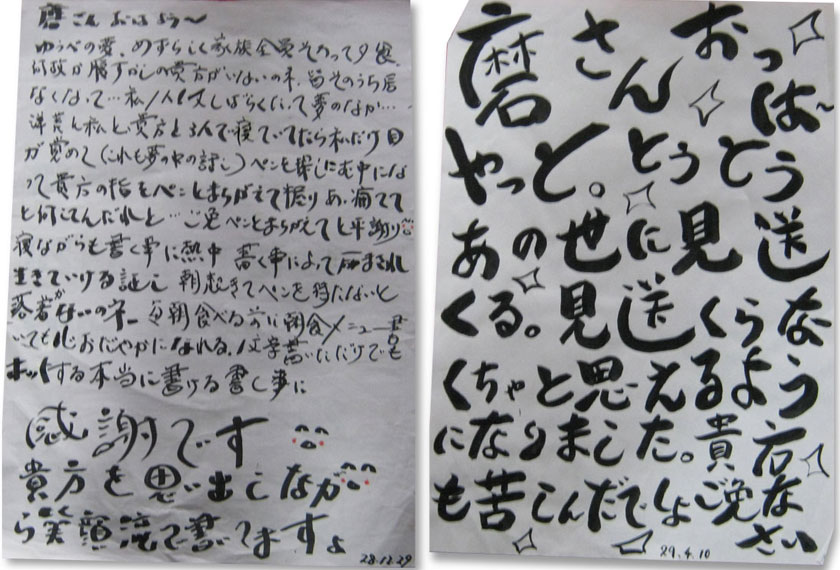 磨さんおはよう〜
ゆうべの夢、めずらしく家族全員そろって夕食
何故か騰すかしの貴方がいないのネ、皆そのうち居
なくなって…私1人しばらくたって夢のなか…
洋芸と私と貴方と3人で寝ていてたら私だけ目
が覚めて(これも夢の中の話し)ペンを探しにむ中にな
って貴方の指をペンとまちがえて握りあ、痛てて
と何してんだれと…ご免ペンとまちがえてと平謝り
寝ながらも書く事に熱中 書く事によって励まされ
生きていける証し 朝起きてペンを持たないと
落着がないのネー 毎朝食べる前に朝食メニュー書
いても心おだやかになれる。1文字書いただけでも
ホットする本当に書ける書く事に
感謝です
貴方を思い出しなが
ら笑顔流で書いてますよ
28.12.29
磨さんおっは〜
やっと。とうとう
あの世に見送
くる。見送くらな
くちゃと思えるよう
になりました。貴方
も苦しんだでしょご免な
さい
29.4.10